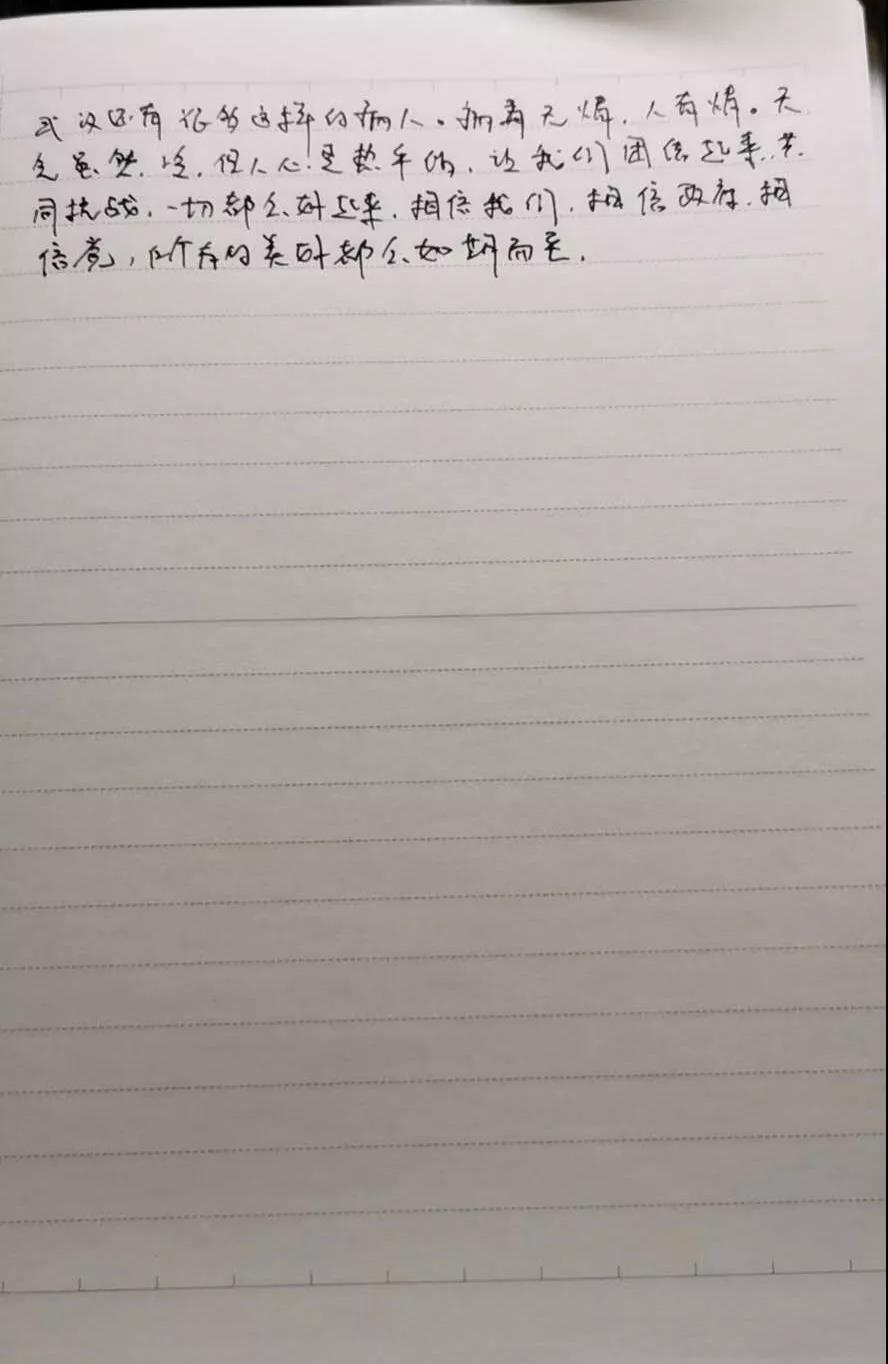 武汉还有很多这样的病人。病毒无情,人有情。天
气虽然冷,但人心是热乎的,让我们团结起来,共
同抗战,一切都会好起来,相信我们,相信政府,相
信党,所有的美好都会如期而至.